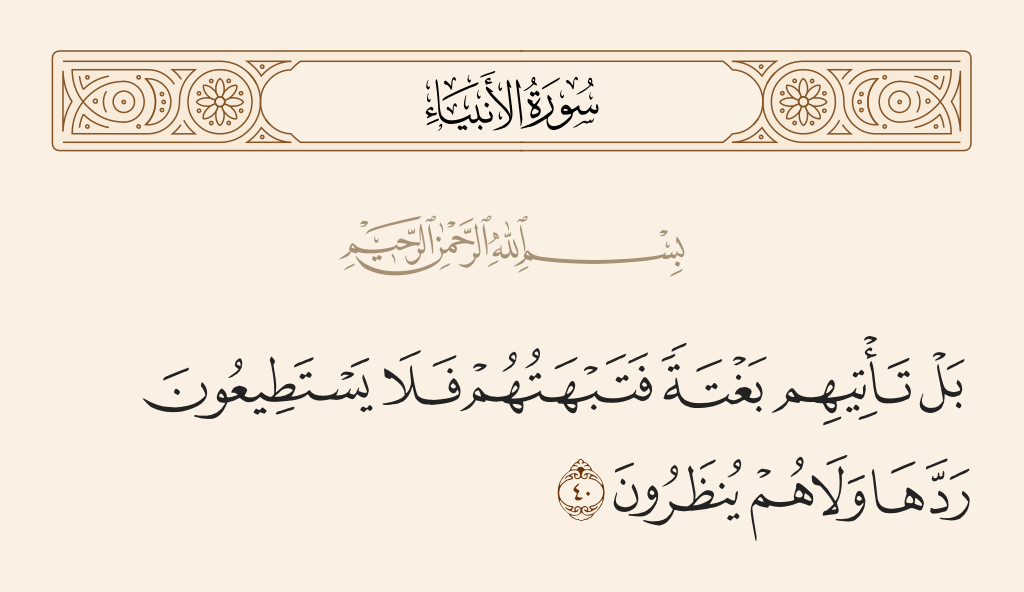 سُورَةُ الأَنبِيَاءِ
بِسْمِ ٱللَّهِ ٱلرَّحْمَٰنِ ٱلرَّحِيمِ
بَلْ تَأْتِيهِم بَغْتَةً فَتَبْهَتُهُمْ فَلَا يَسْتَطِيعُونَ
رَدَّهَا وَلَا هُمْ يُنظَرُونَ ٤٠